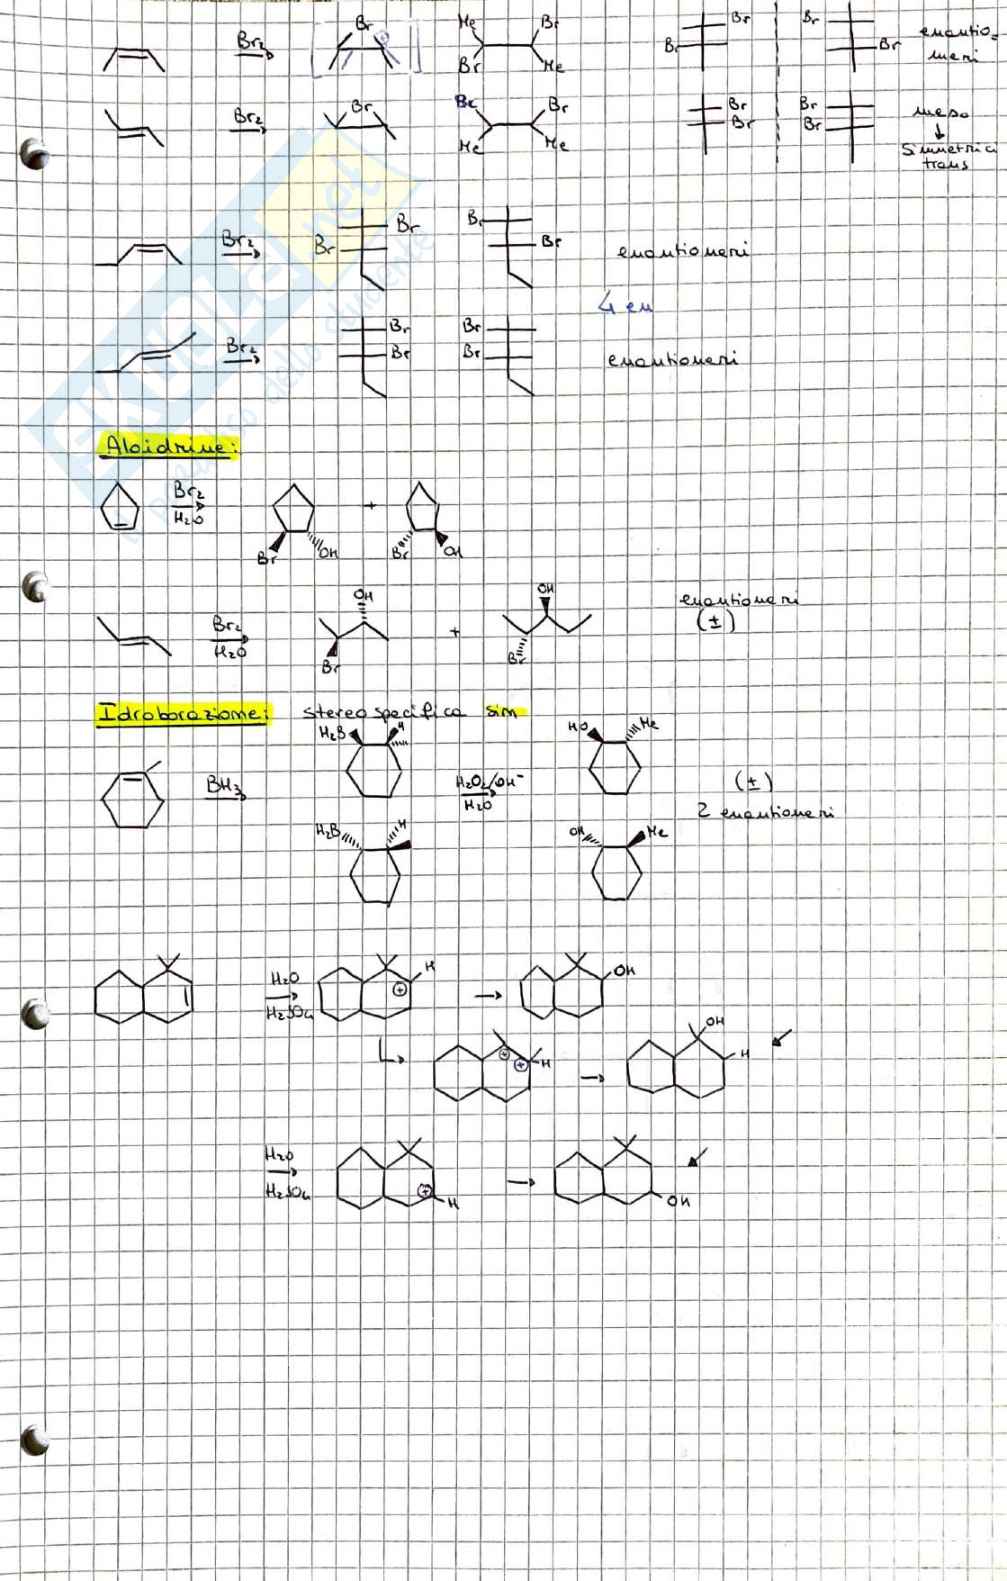 Br₂ Br ⊕ Me Br Br Me Br Br Br Br enantio-
meri
Br₂ Br Br Br Me Me Br Br Br Br meso
↓
Simmetria
trans
Br₂ Br Br Br Br enantiomeri
4 en
Br₂ Br Br Br Br enantiomeri
Aloidrine:
Br₂
H₂O + Br OH Br OH
Br₂
H₂O OH Br + OH Br enantiomeri
(±)
Idroborazione: stereospecifica sin
BH₃ H₂B H H₂O₂/OH⁻
H₂O HO Me (±)
2 enantiomeri
H₂B H OH Me
H₂O
H₂SO₄ ⊕ H → OH
⊕ ⊕ H → OH H
H₂O
H₂SO₄ ⊕ H → OH